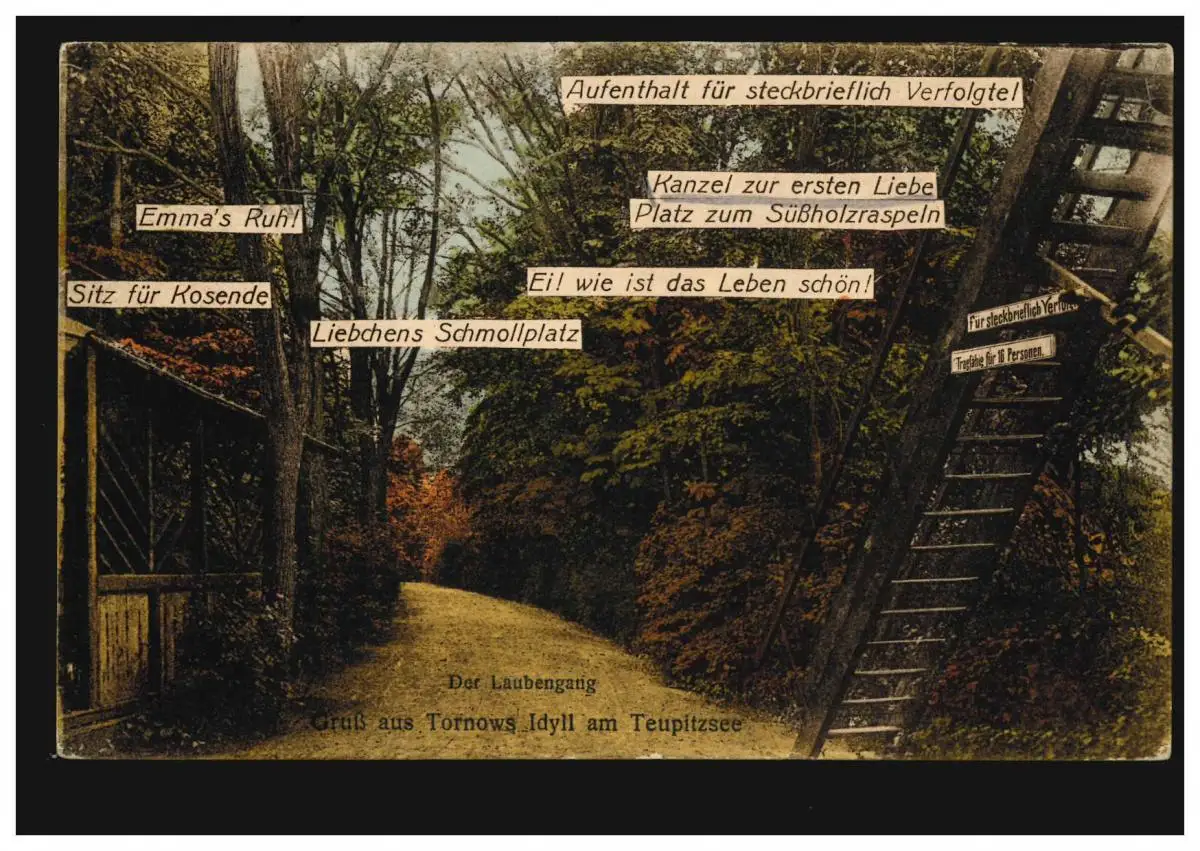 Aufenthalt für steckbrieflich Verfolgte!
Kanzel zur ersten Liebe
Platz zum Süßholzraspeln
Emma's Ruh!
Ei! wie ist das Leben schön!
Sitz für Kosende
Liebchens Schmollplatz
Für steckbrieflich Verfolg
Tragfähig für 16 Personen.
Der Laubengang
Gruß aus Tornows Idyll am Teupitzsee